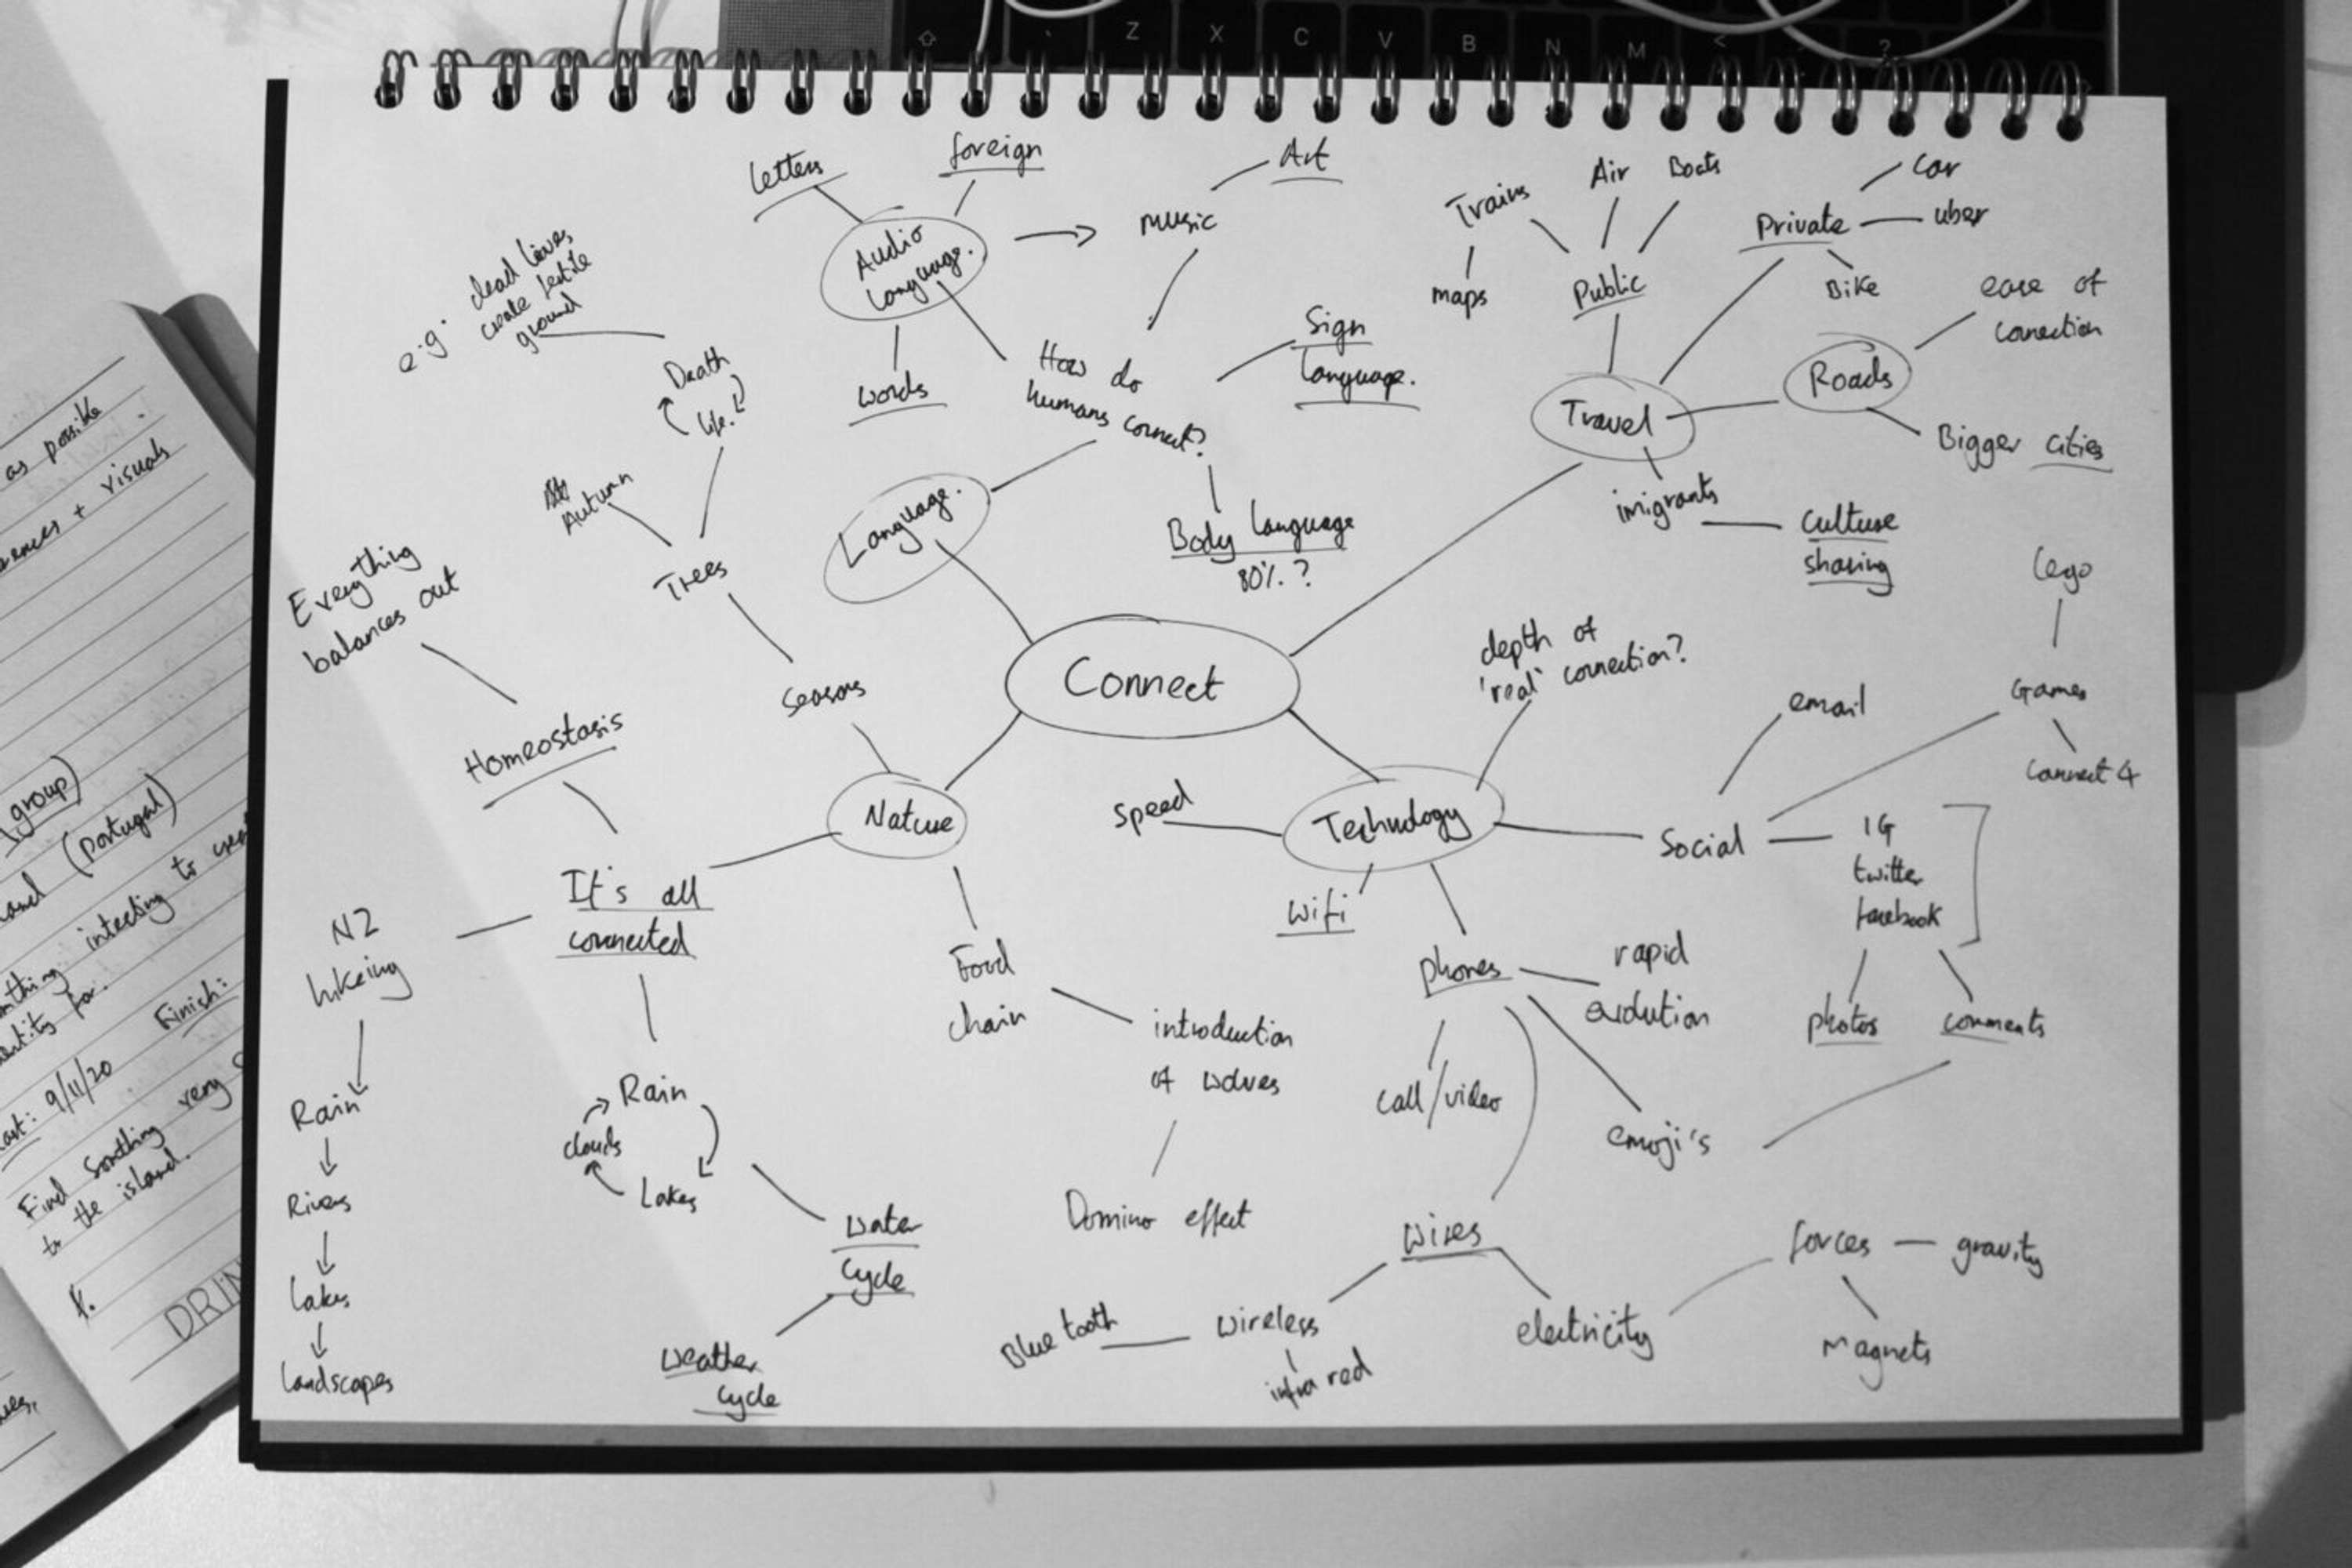 Z X C V B N M < ?
Letters
foreign
Art
Audio
Language.
music
words
How do
humans connect?
Sign
Language.
Body Language
80%. ?
Language.
e.g. dead leaves
create fertile
ground
Death
life.
Autumn
Trees
Seasons
Everything
balances out
Homeostasis
Connect
Trains
maps
Air
Boats
Public
Private
car
uber
Bike
Travel
Roads
ease of
connection
Bigger cities
imigrants
Culture
sharing
Nature
It's all
connected
NZ
hikeing
Rain
Rivers
Lakes
Landscapes
Rain
clouds
Lakes
Water
Cycle
Weather
Cycle
Food
chain
introduction
of wolves
Domino effect
Technology
Speed
depth of
'real' connection?
Wifi
phones
rapid
evolution
call/video
emoji's
Social
email
Games
Lego
Connect 4
IG
twitter
facebook
photos
comments
Wires
wireless
Blue tooth
infra red
electricity
forces
gravity
Magnets
as possible
+ visuals
group)
(Portugal)
to
Finish:
9/11/20
very
Find something
to the island.